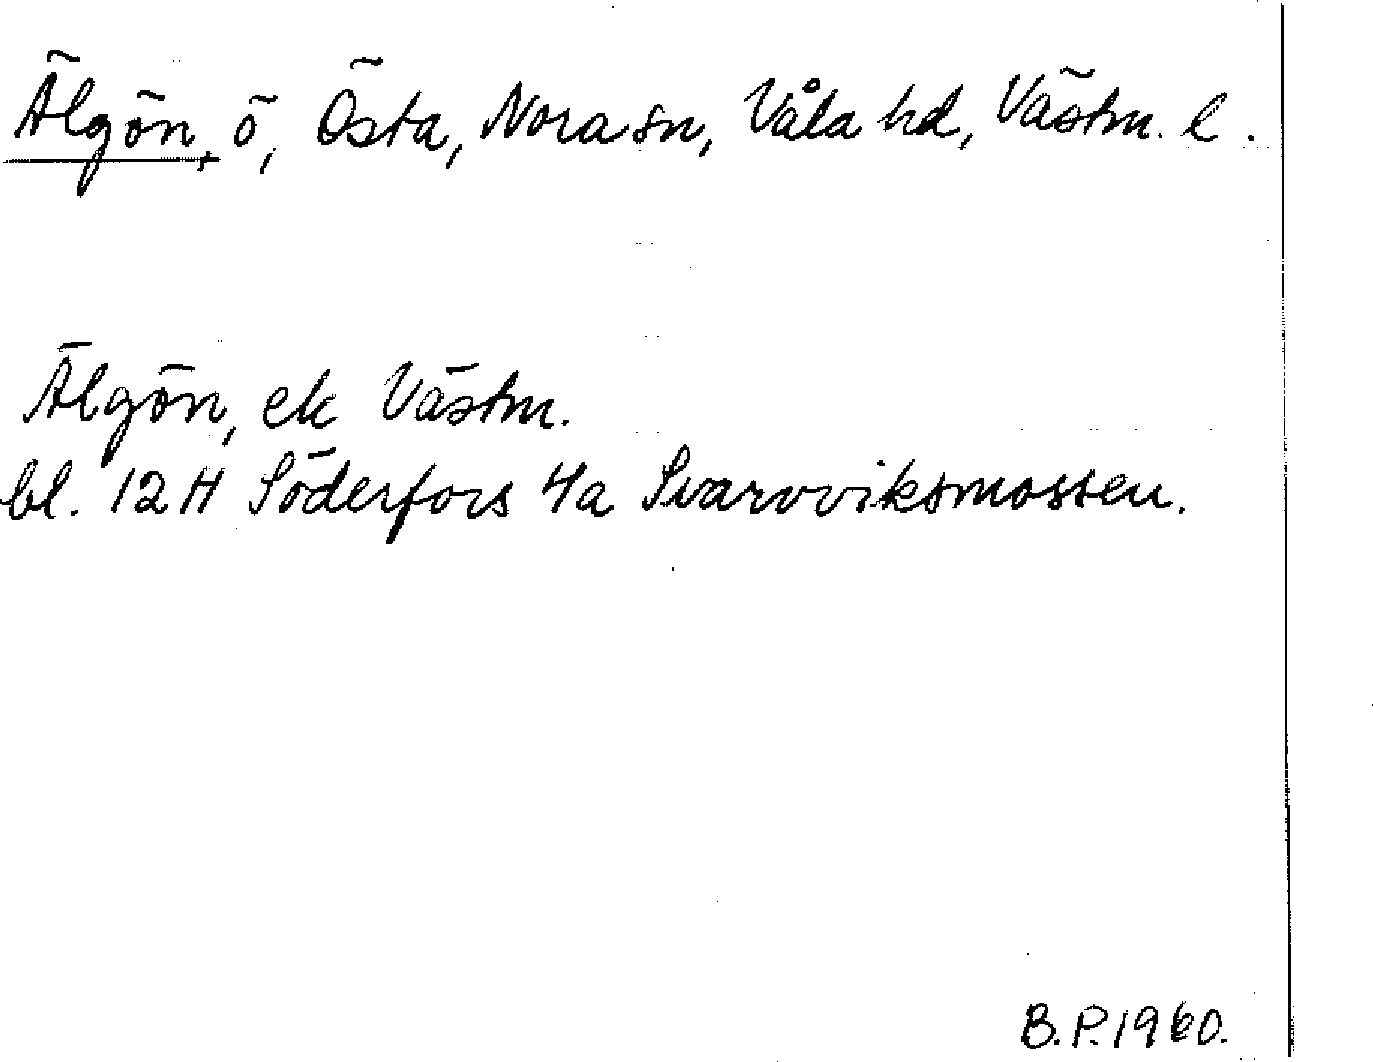 Älgön, ö, Östa, Nora sn, Våla hd, Västm. l.
Älgön, ek Västm.
bl. 12H Söderfors 4a Svarvviksmossen.
B.P. 1960.